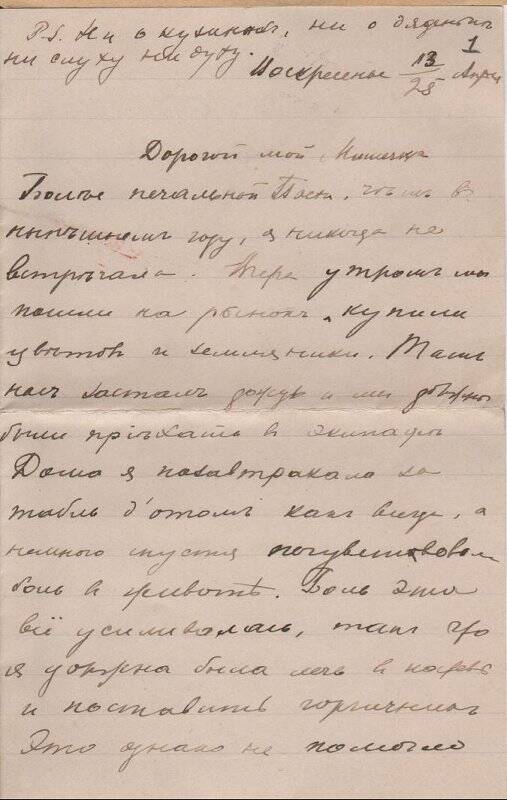 P.S. Ни о кузинахъ, ни о дяденькѣ
ни слуху ни духу.
1
Воскресенье 13/25 Апрѣ
Дорогой мой Мишечка
Болѣе печальной Пасхи, чѣмъ въ
нынѣшнемъ году, я никогда не
встрѣчала. Вчера утромъ мы
пошли на рынокъ, купили
цвѣтовъ и земляники. Тамъ
насъ засталъ дождь и мы должны
были пріѣхать в экипажѣ
Дома я позавтракала за
табль д'отомъ какъ всегда, а
немного спустя почувствовала
боль в животѣ. Боль эта
всё усиливалась, такъ что
я должна была лечь в кровать
и поставить горчичникъ
Это однако не помогло